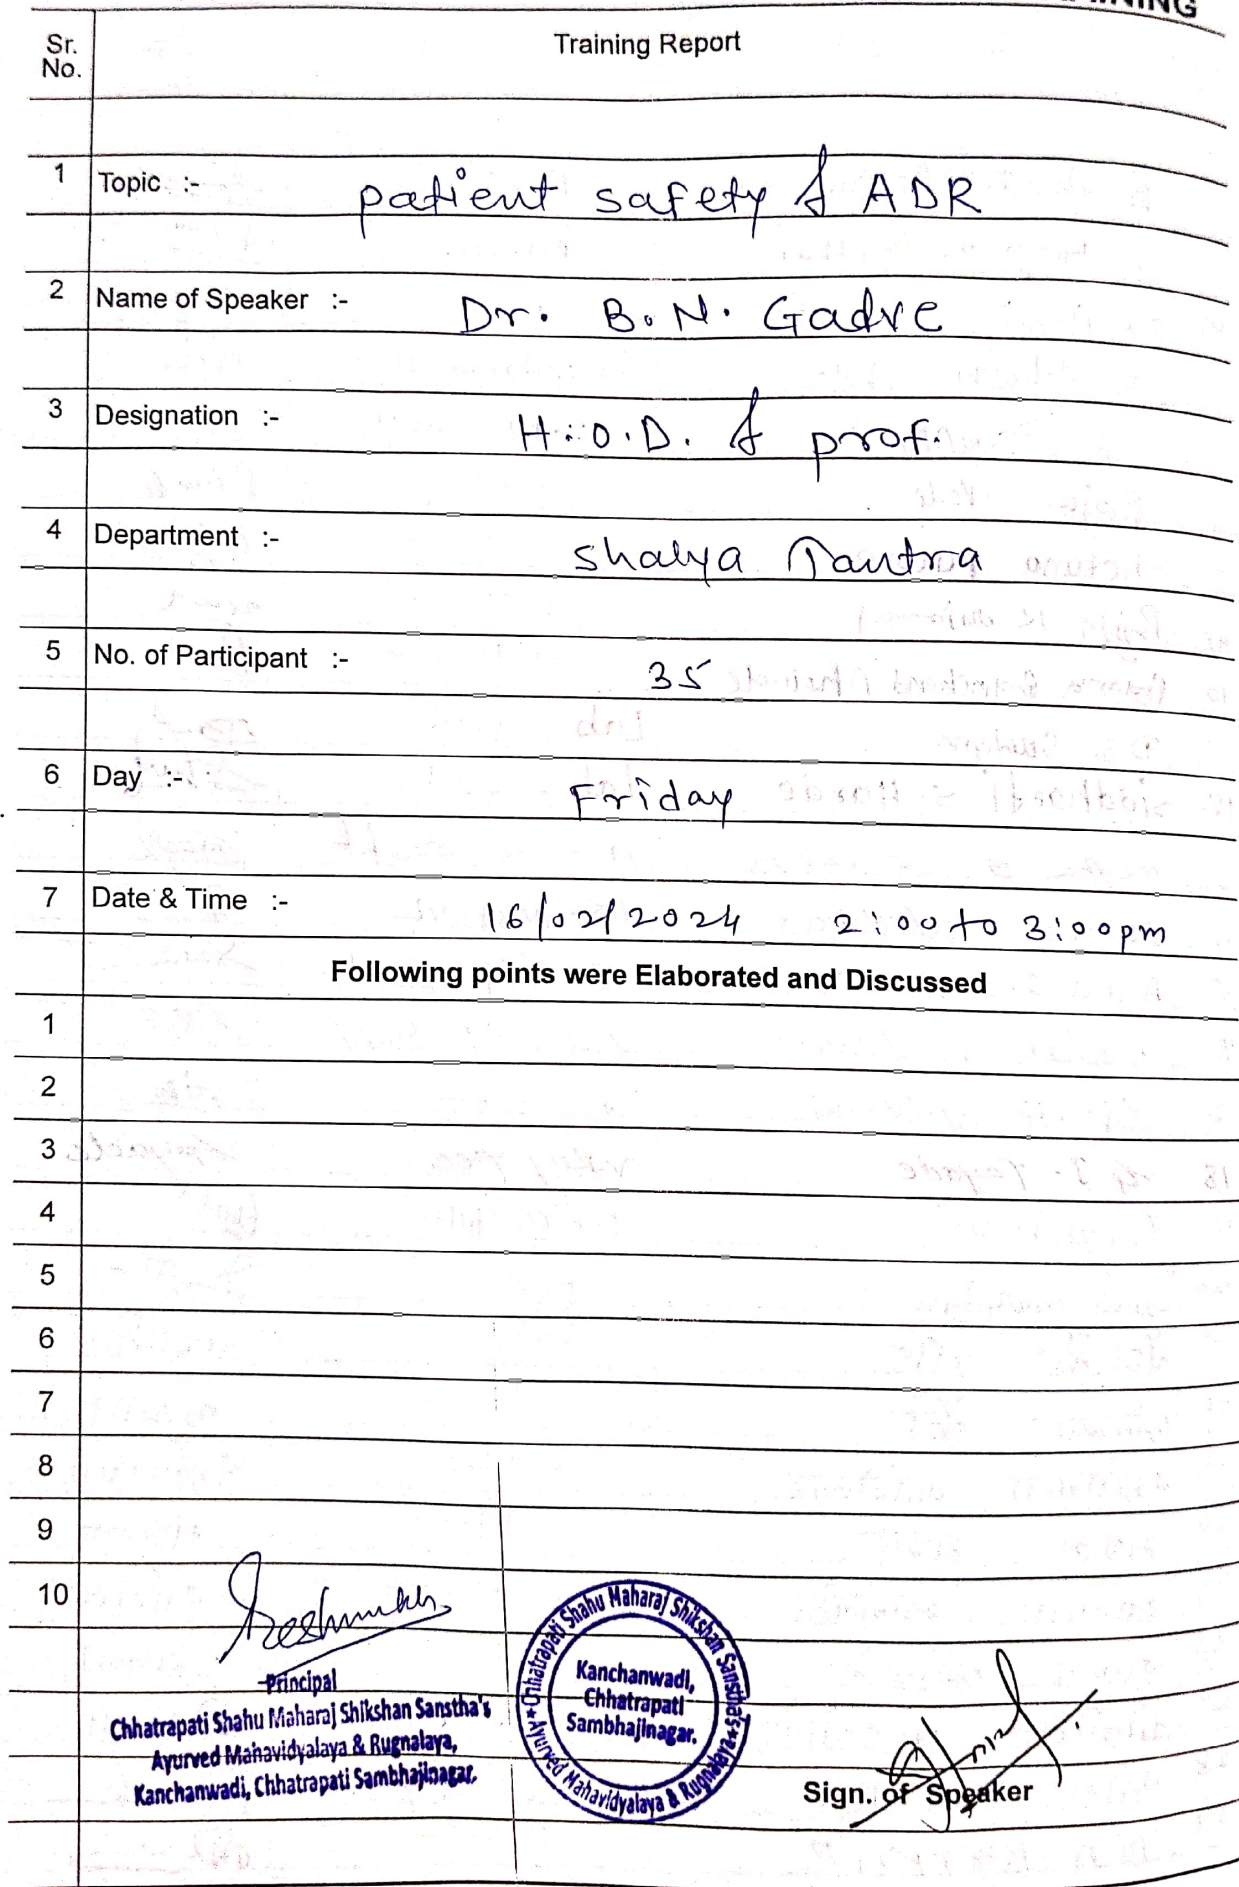 Sr. No.
Training Report
1 Topic :- patient safety & ADR
2 Name of Speaker :- Dr. B. N. Gadve
3 Designation :- H.O.D. & prof.
4 Department :- Shalya Tantra
5 No. of Participant :- 35
6 Day :- Friday
7 Date & Time :- 16/02/2024 2:00 to 3:00pm
Following points were Elaborated and Discussed
1
2
3
4
5
6
7
8
9
10
Principal
Chhatrapati Shahu Maharaj Shikshan Sanstha's
Ayurved Mahavidyalaya & Rugnalaya,
Kanchanwadi, Chhatrapati Sambhajinagar.
Chhatrapati Shahu Maharaj Shikshan Sanstha's
Ayurved Mahavidyalaya & Rugnalaya
Kanchanwadi,
Chhatrapati
Sambhajinagar.
Sign. of Speaker